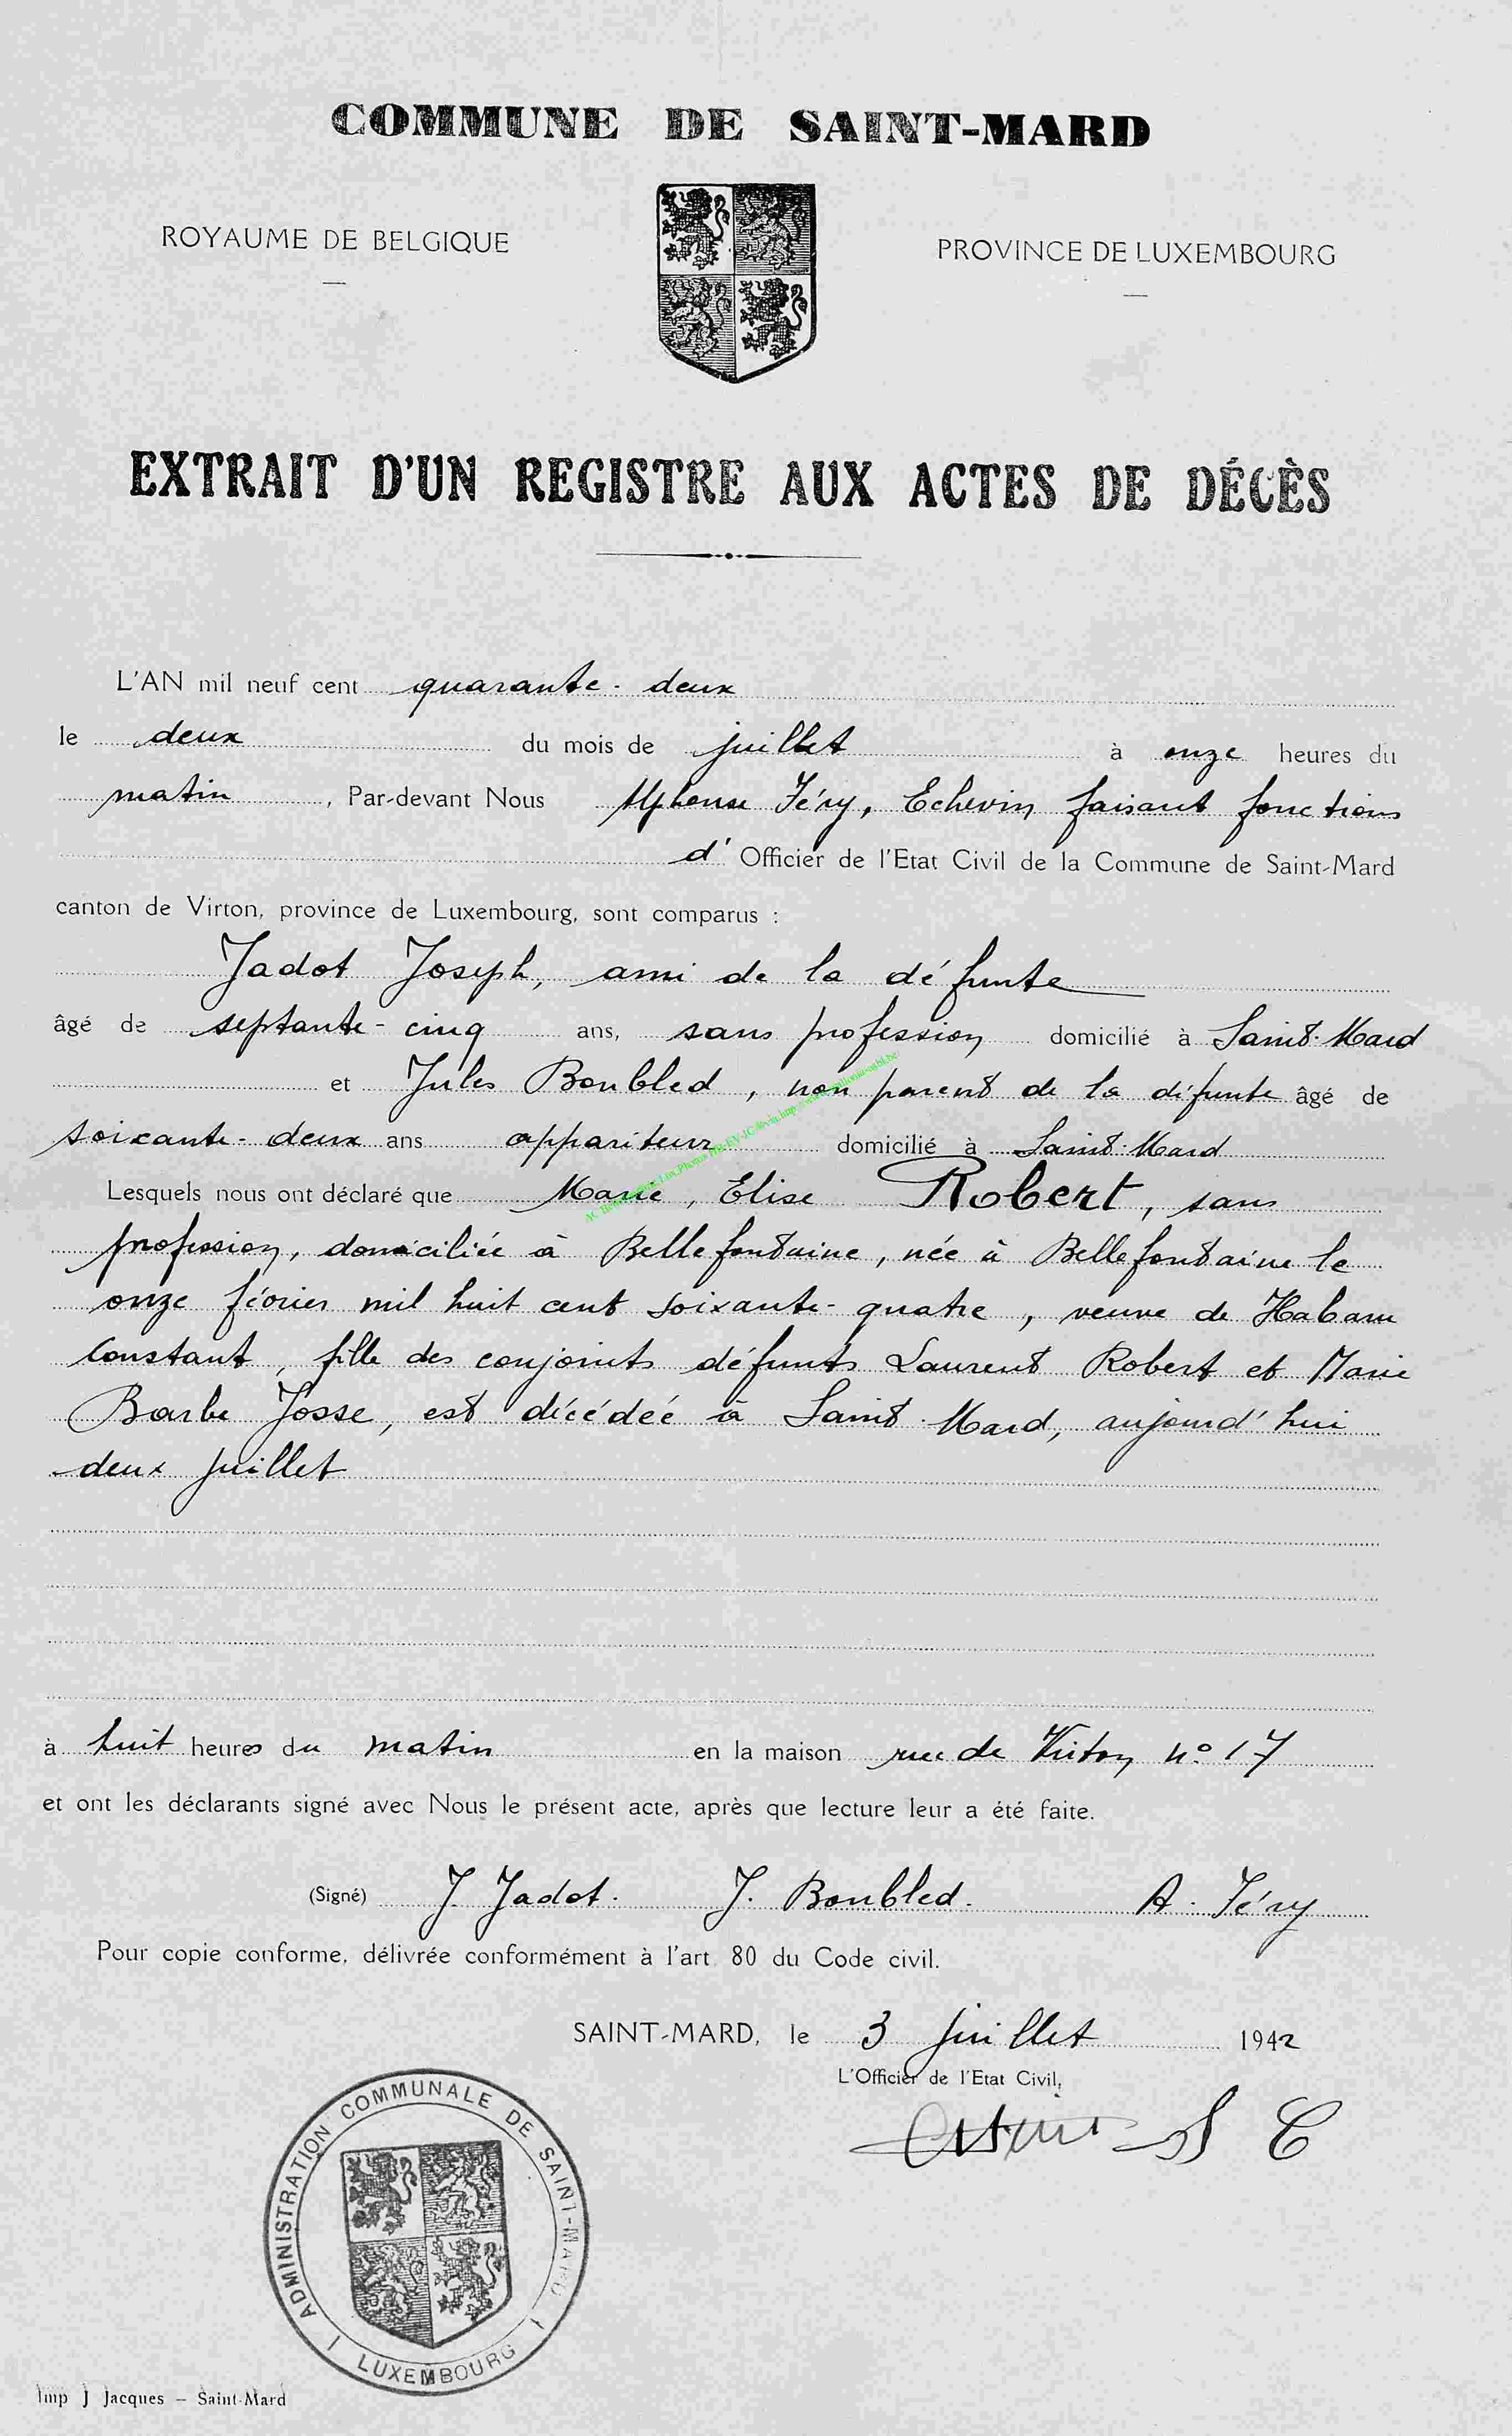 COMMUNE DE SAINT-MARD
ROYAUME DE BELGIQUE
PROVINCE DE LUXEMBOURG
EXTRAIT D'UN REGISTRE AUX ACTES DE DÉCÈS
L'AN mil neuf cent quarante-deux
le deux du mois de juillet à onze heures du
matin, Par-devant Nous Alphonse Féry, Echevin faisant fonctions
d' Officier de l'Etat Civil de la Commune de Saint-Mard
canton de Virton, province de Luxembourg, sont comparus :
Jadot Joseph, ami de la défunte
âgé de septante-cinq ans, sans profession domicilié à Saint-Mard
et Jules Boubled, non parent de la défunte âgé de
soixante-deux ans appariteur domicilié à Saint-Mard
Lesquels nous ont déclaré que Marie, Elise Robert, sans
profession, domiciliée à Bellefontaine, née à Bellefontaine le
onze février mil huit cent soixante-quatre, veuve de Habaru
Constant, fille des conjoints défunts Laurent Robert et Marie
Barbe Josse, est décédée à Saint-Mard, aujourd'hui
deux juillet
à huit heures du matin en la maison rue de Virton n° 17
et ont les déclarants signé avec Nous le présent acte, après que lecture leur a été faite.
(Signé) J. Jadot. J. Boubled. A. Féry
Pour copie conforme, délivrée conformément à l'art. 80 du Code civil.
SAINT-MARD, le 3 juillet 1942
L'Officier de l'Etat Civil,
ADMINISTRATION COMMUNALE DE SAINT-MARD
LUXEMBOURG
Imp J Jacques – Saint-Mard